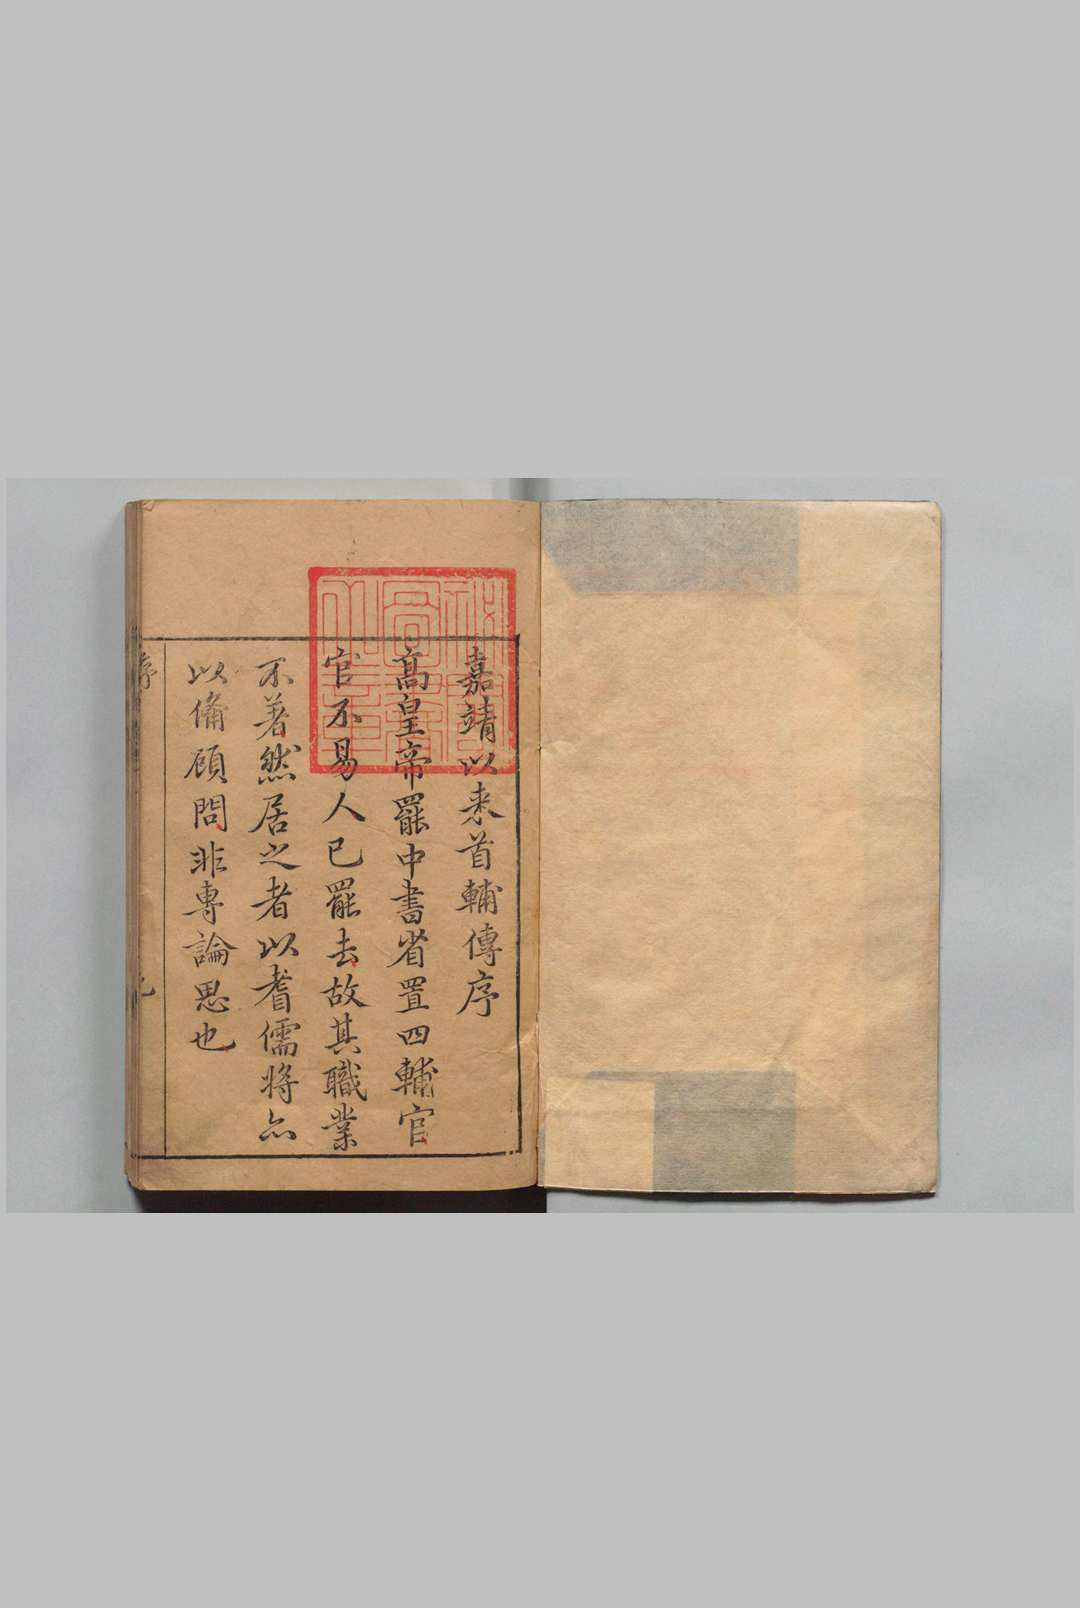 嘉靖以来首輔傳序
髙皇帝罷中書省置四輔官
官不易人已罷去故其職業
不著然居之者以耆儒將亦
以備顧問非專論思也
序